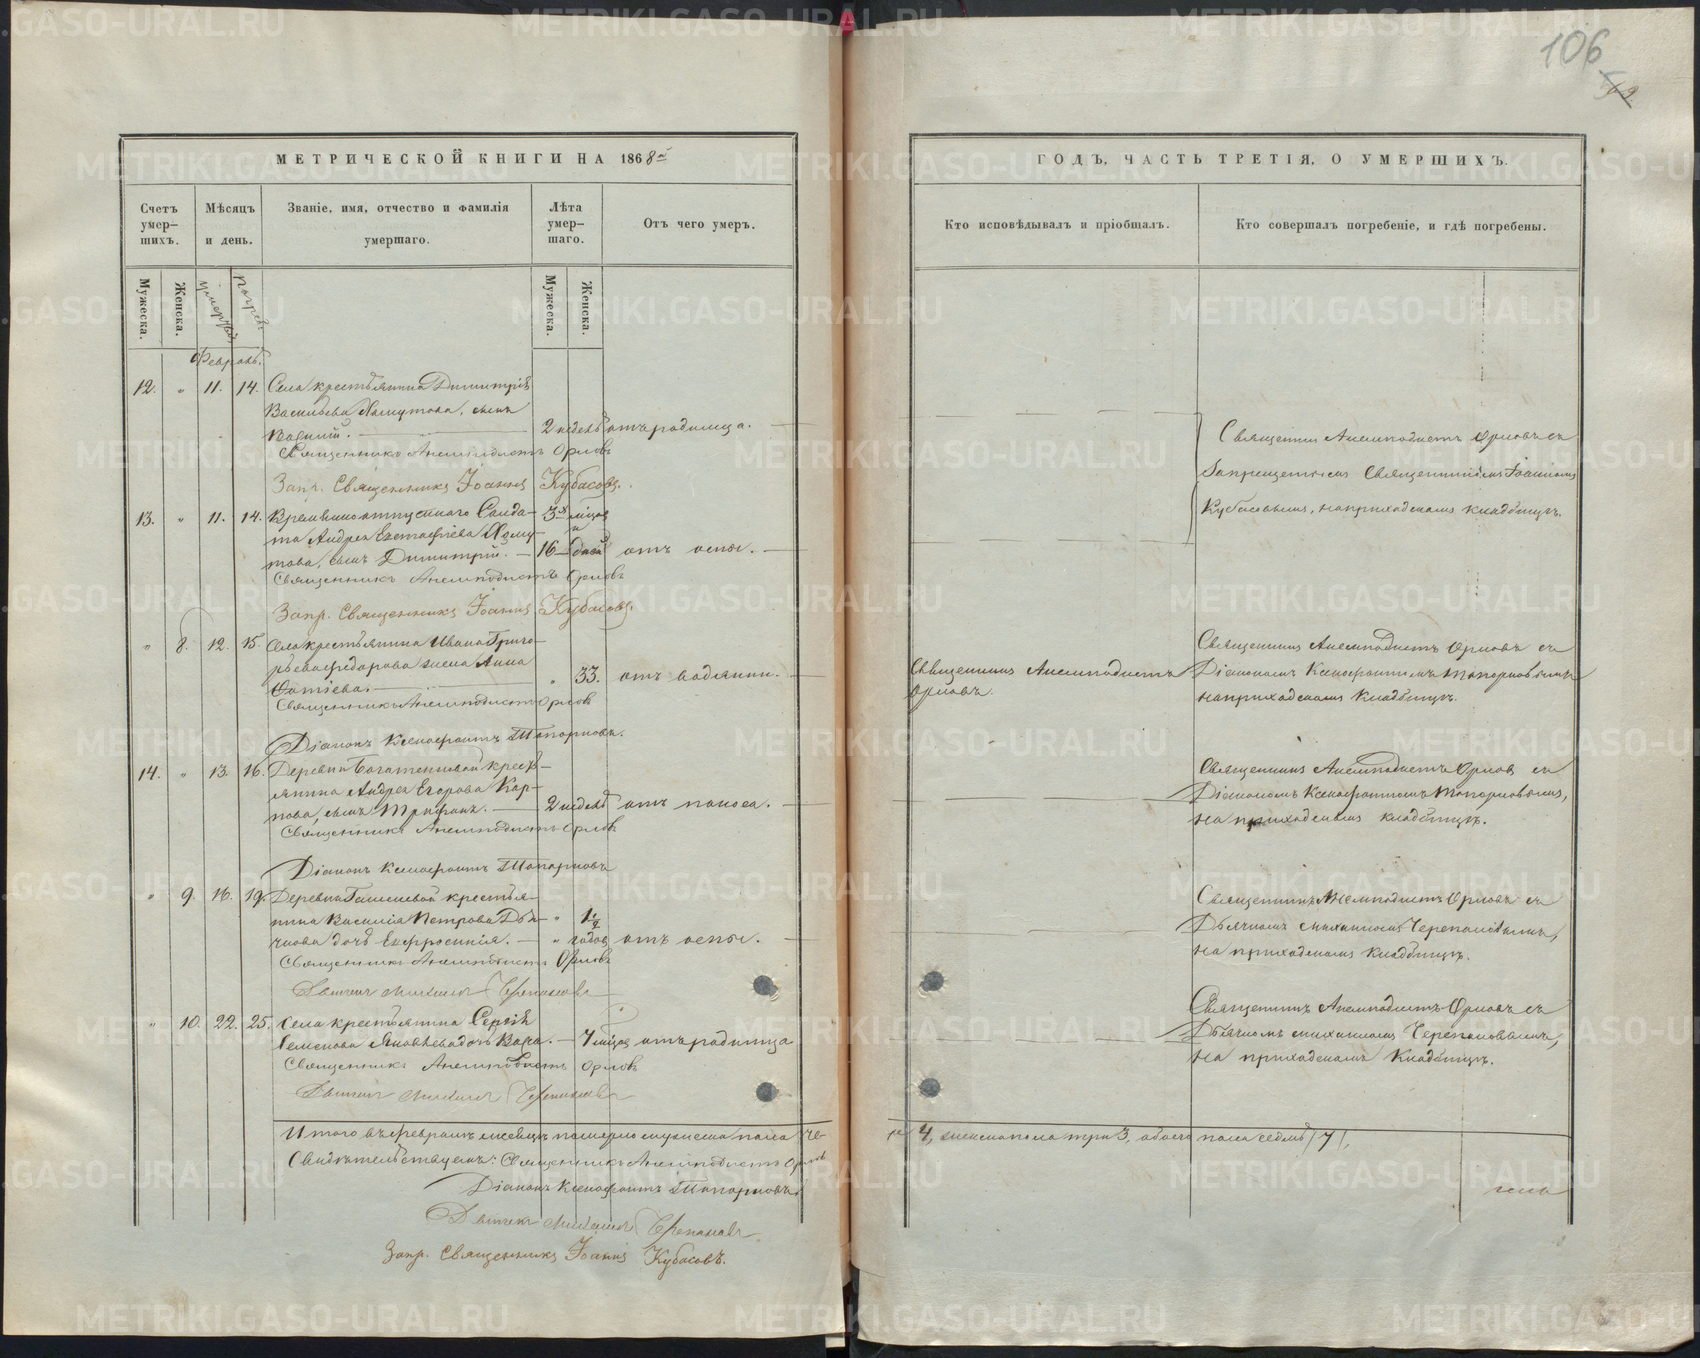 106
МЕТРИЧЕСКОЙ КНИГИ НА 1868й
Счетъ умер-шихъ.
Мѣсяцъ и день.
Званіе, имя, отчество и фамилія умершаго.
Лѣта умер-шаго.
Отъ чего умеръ.
Мужеска.
Женска.
Мужеска.
Женска.
Февраль.
12. " 11. 14. Села крестьянина Димитрія
Васильева Хомутова, сынъ
Василій. 2 недель отъ родимца.
Священникъ Анемподистъ Орловъ
Запр. Священникъ Іоаннъ Кубасовъ.
13. " 11. 14. Временно отпускного Солда-
та Андрея Евстафіева Хому-
това, сынъ Димитрій. 3х мѣсяц и 16 дней отъ оспы.
Священникъ Анемподистъ Орловъ
Запр. Священникъ Іоаннъ Кубасовъ.
" 8. 12. 15. Села крестьянина Ивана Григо-
рьева Федорова жена Анна
Фотіева. " 33. отъ водянки.
Священникъ Анемподистъ Орловъ
Діаконъ Ксенофонтъ Топорковъ.
14. " 13. 16. Деревни крест-
янина Андрея Егорова Кар-
пова, сынъ Трифонъ. 2 недель отъ поноса.
Священникъ Анемподистъ Орловъ
Діаконъ Ксенофонтъ Топорковъ
" 9. 16. 19. Деревни крестья-
нина Василія Петрова
дочь Евфросинія. " 1 1/2 годов отъ оспы.
Священникъ Анемподистъ Орловъ
Дьячекъ Михаилъ Черепановъ
" 10. 22. 25. Села крестьянина Сергія
Семенова Яковлева дочь Вара. 7 мѣсяц отъ родимца
Священникъ Анемподистъ Орловъ
Дьячекъ Михаилъ Черепановъ
Итого въ Февралѣ месяцѣ померло мужеска пола че-
Свидѣтельствуемъ: Священникъ Анемподистъ Орловъ
Діаконъ Ксенофонтъ Топорковъ
Дьячекъ Михаилъ Черепановъ
Запр. Священникъ Іоаннъ Кубасовъ.
ГОДЪ, ЧАСТЬ ТРЕТІЯ, О УМЕРШИХЪ.
Кто исповѣдывалъ и пріобщалъ.
Кто совершалъ погребеніе, и гдѣ погребены.
Священник Анемподистъ Орловъ съ
Запрещеннымъ Священникомъ Іоанномъ
Кубасовымъ, на приходскомъ кладбищѣ.
Священникъ Анемподистъ
Орловъ.
Священникъ Анемподистъ Орловъ съ
Діакономъ Ксенофонтомъ Топорковымъ
на приходскомъ кладбищѣ.
Священникъ Анемподистъ Орловъ съ
Діакономъ Ксенофонтомъ Топорковымъ,
на приходскомъ кладбищѣ.
Священникъ Анемподистъ Орловъ съ
Дьячкомъ Михаиломъ Черепановымъ,
на приходскомъ кладбищѣ.
Священникъ Анемподистъ Орловъ съ
Дьячкомъ Михаиломъ Черепановымъ,
на приходскомъ кладбищѣ.
4, женска пола три 3, обоего пола седмь /7/.
METRIKI.GASO-URAL.RU